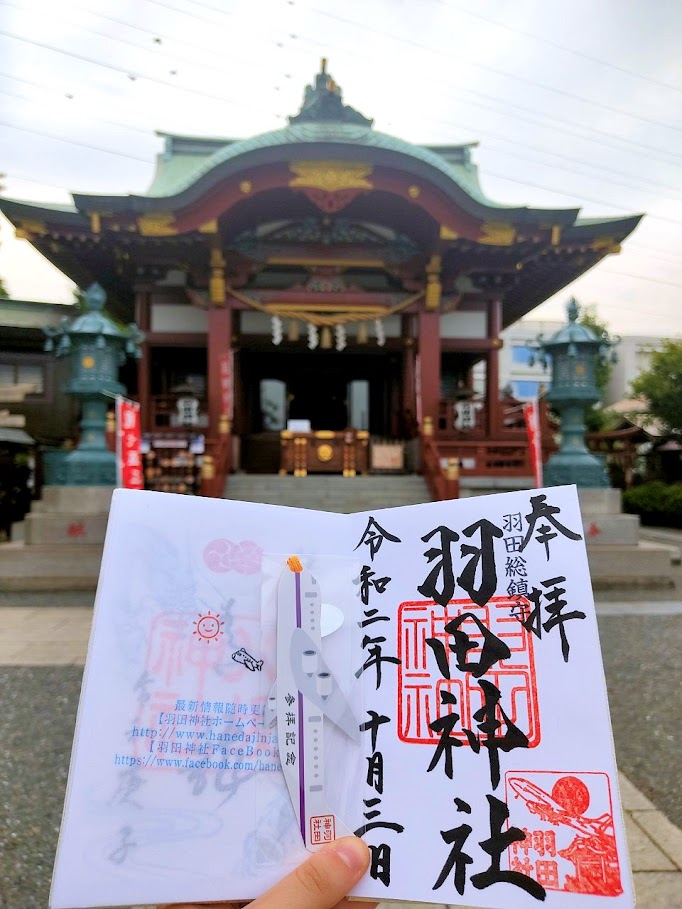 奉拝
羽田総鎮守
羽田神社
令和二年十月三日
羽田
神社
参拝記念
羽田
神社
最新情報随時更
【羽田神社ホームペー
http://www.hanedajinja
【羽田神社FaceBook
https://www.facebook.com/hane